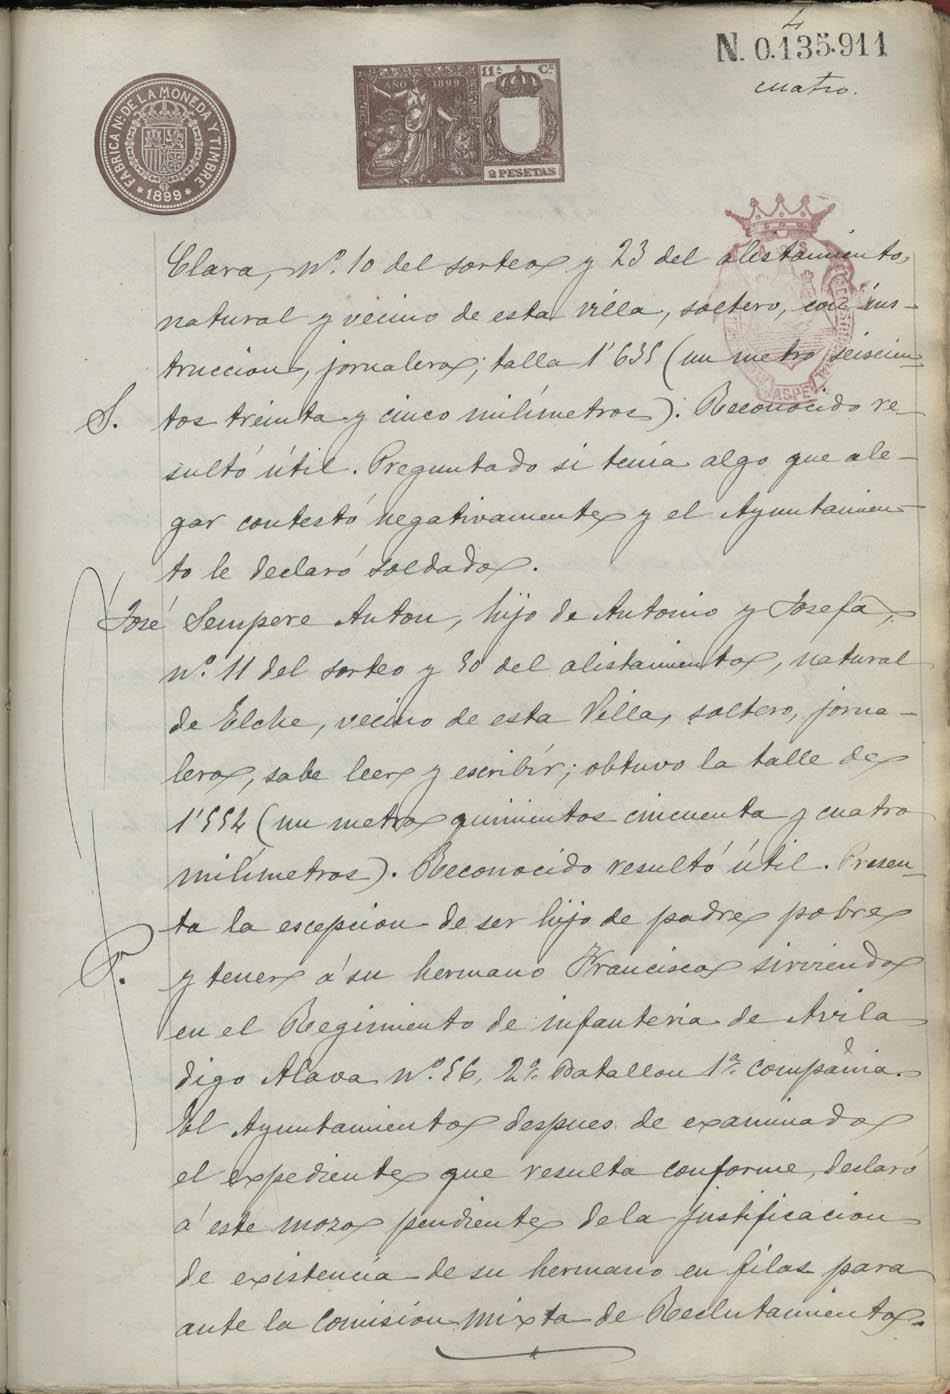 4
N. 0.135.911
cuatro.
FABRICA NL. DE LA MONEDA Y TIMBRE
1899
AÑO 1899
11ª Cª
2 PESETAS
Clara, nº. 10 del sorteo y 23 del alistamiento,
natural y vecino de esta villa, soltero, con ins-
truccion, jornalero; talla 1'635 (un metro seiscien
S. tos treinta y cinco milímetros). Reconocido re-
sultó útil. Preguntado si tenía algo que ale-
gar contestó negativamente y el Ayuntamien-
to le declaró soldado.
José Sempere Anton, hijo de Antonio y Josefa,
nº. 11 del sorteo y 30 del alistamiento, natural
de Elche, vecino de esta Villa, soltero, jorna-
lero, sabe leer y escribír; obtuvo la talle de
1'554 (un metro quinientos cincuenta y cuatro
milímetros). Reconocido resultó útil. Presen-
ta la escepcion de ser hijo de padre pobre
P. y tener á su hermano Francisco sirviendo
en el Regimiento de infanteria de Avila
digo Alava nº. 56, 2º. Batallon 1ª. compañia.
El Ayuntamiento despues de examinado
el expediente que resulta conforme, declaró
á este mozo pendiente de la justificacion
de existencía de su hermano en filas para
ante la Comision mixta de Reclutamiento.